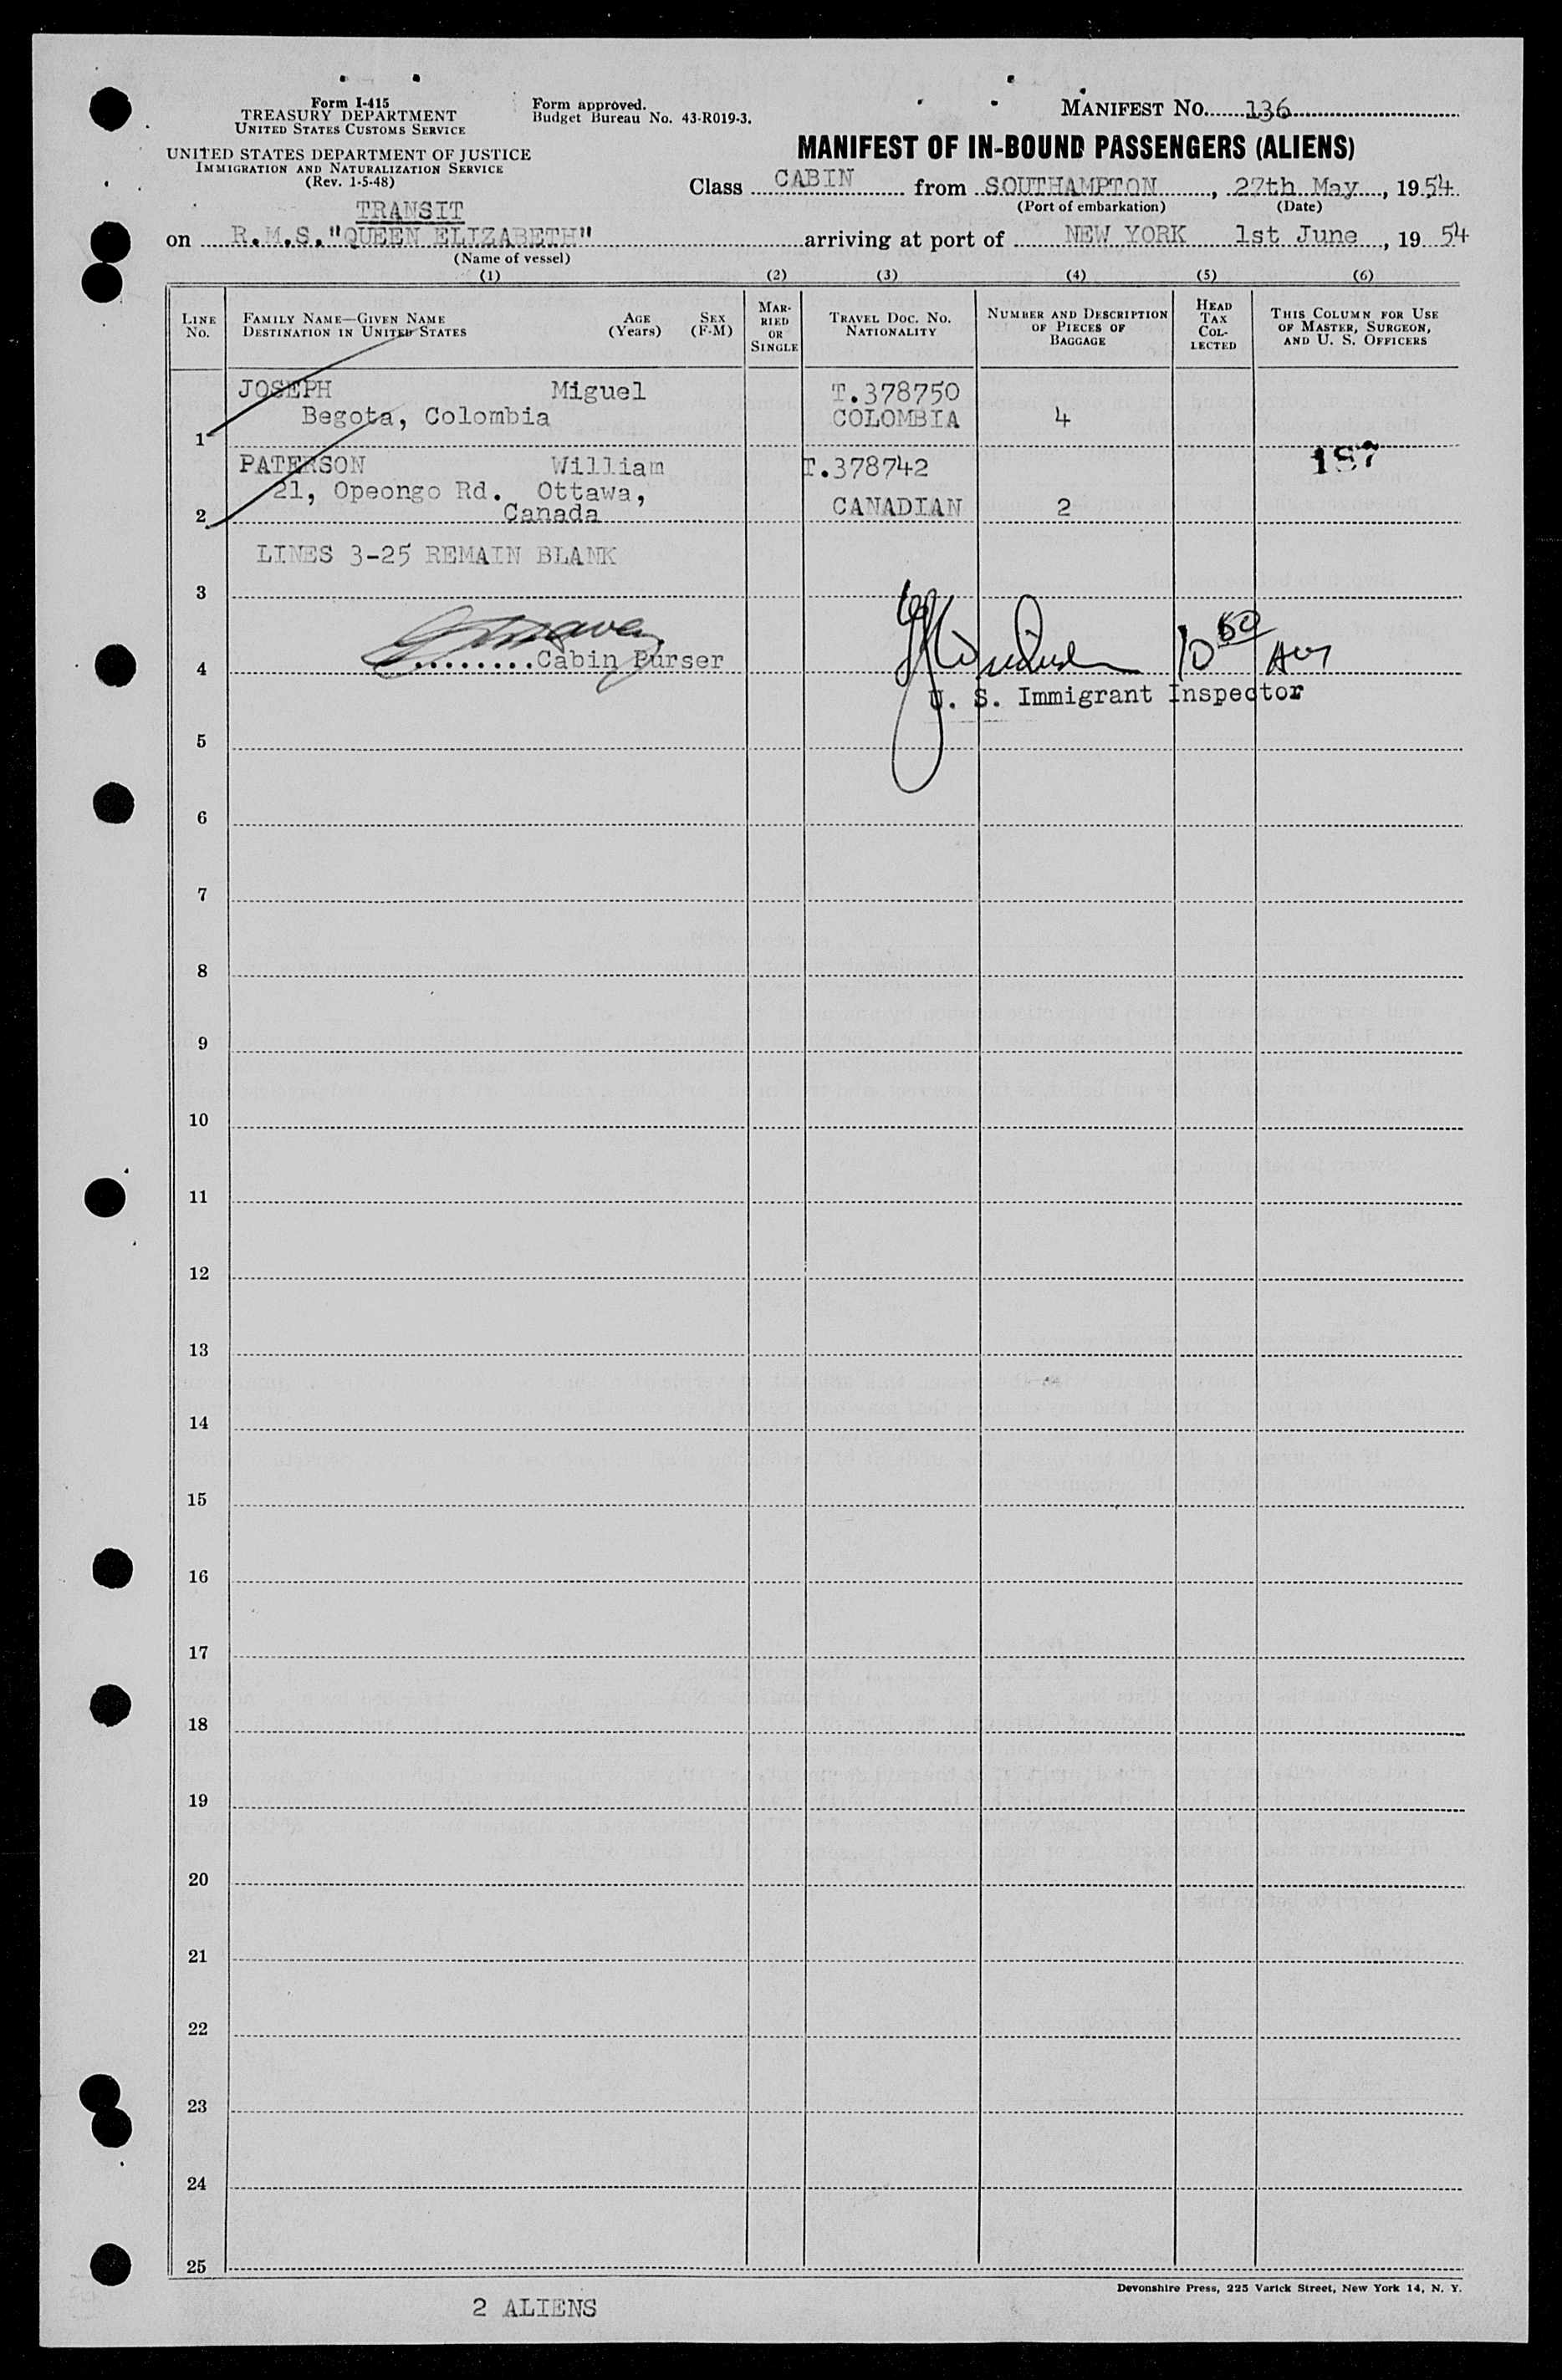 Form I-415
TREASURY DEPARTMENT
UNITED STATES CUSTOMS SERVICE
UNITED STATES DEPARTMENT OF JUSTICE
IMMIGRATION AND NATURALIZATION SERVICE
(Rev. 1-5-48)
Form approved.
Budget Bureau No. 43-R019-3.
MANIFEST NO. 136
MANIFEST OF IN-BOUND PASSENGERS (ALIENS)
Class CABIN from SOUTHAMPTON, 27th May, 1954
(Port of embarkation) (Date)
TRANSIT
on R.M.S."QUEEN ELIZABETH" arriving at port of NEW YORK 1st June, 19 54
(Name of vessel)
(1) (2) (3) (4) (5) (6)
LINE NO.
FAMILY NAME—GIVEN NAME
DESTINATION IN UNITED STATES
AGE (Years)
SEX (F-M)
MARRIED OR SINGLE
TRAVEL DOC. NO.
NATIONALITY
NUMBER AND DESCRIPTION OF PIECES OF BAGGAGE
HEAD TAX COLLECTED
THIS COLUMN FOR USE OF MASTER, SURGEON, AND U. S. OFFICERS
JOSEPH Miguel T.378750
Begota, Colombia COLOMBIA 4
1
PATERSON William T.378742 187
21, Opeongo Rd. Ottawa,
2 Canada CANADIAN 2
LINES 3-25 REMAIN BLANK
3
4 ........Cabin Purser 10 50 AM
U. S. Immigrant Inspector
5
6
7
8
9
10
11
12
13
14
15
16
17
18
19
20
21
22
23
24
25
Devonshire Press, 225 Varick Street, New York 14, N. Y.
2 ALIENS